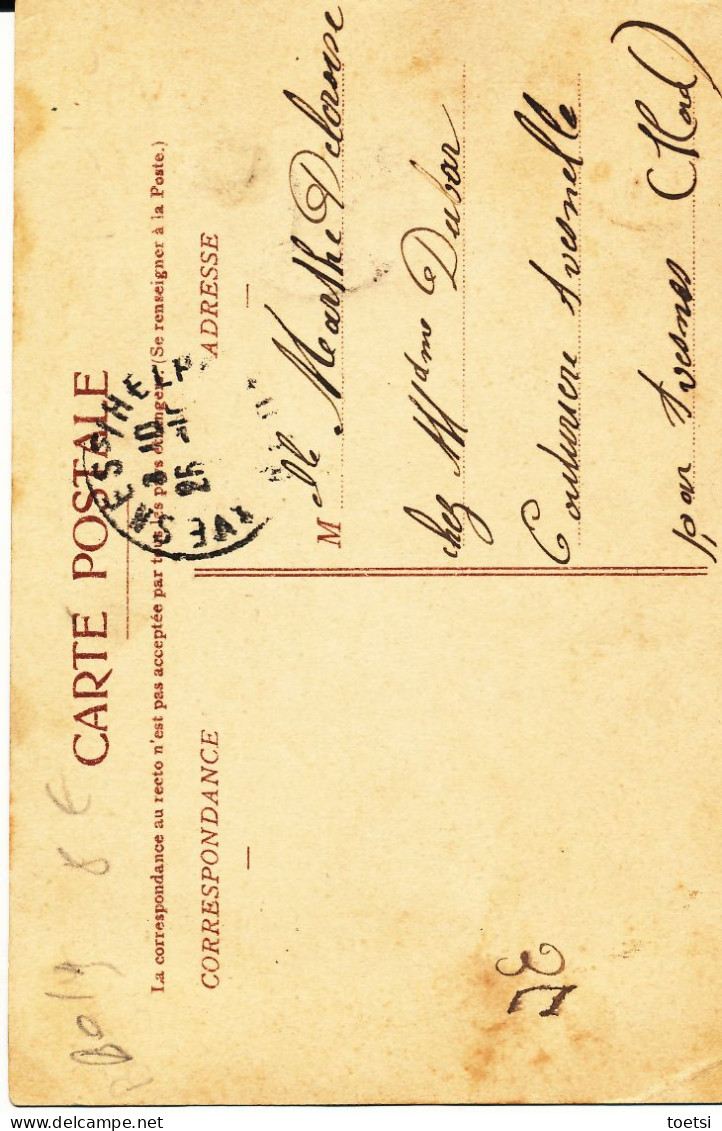 CARTE POSTALE
La correspondance au recto n'est pas acceptée par tous les pays étrangers (Se renseigner à la Poste.)
CORRESPONDANCE
ADRESSE
M elle Marthe Delorose
chez Mdme Dubar
Couturiere Avesnelle
par Avesnes (Nord)
AVESNES S/HELPE
25
8 €
toetsi